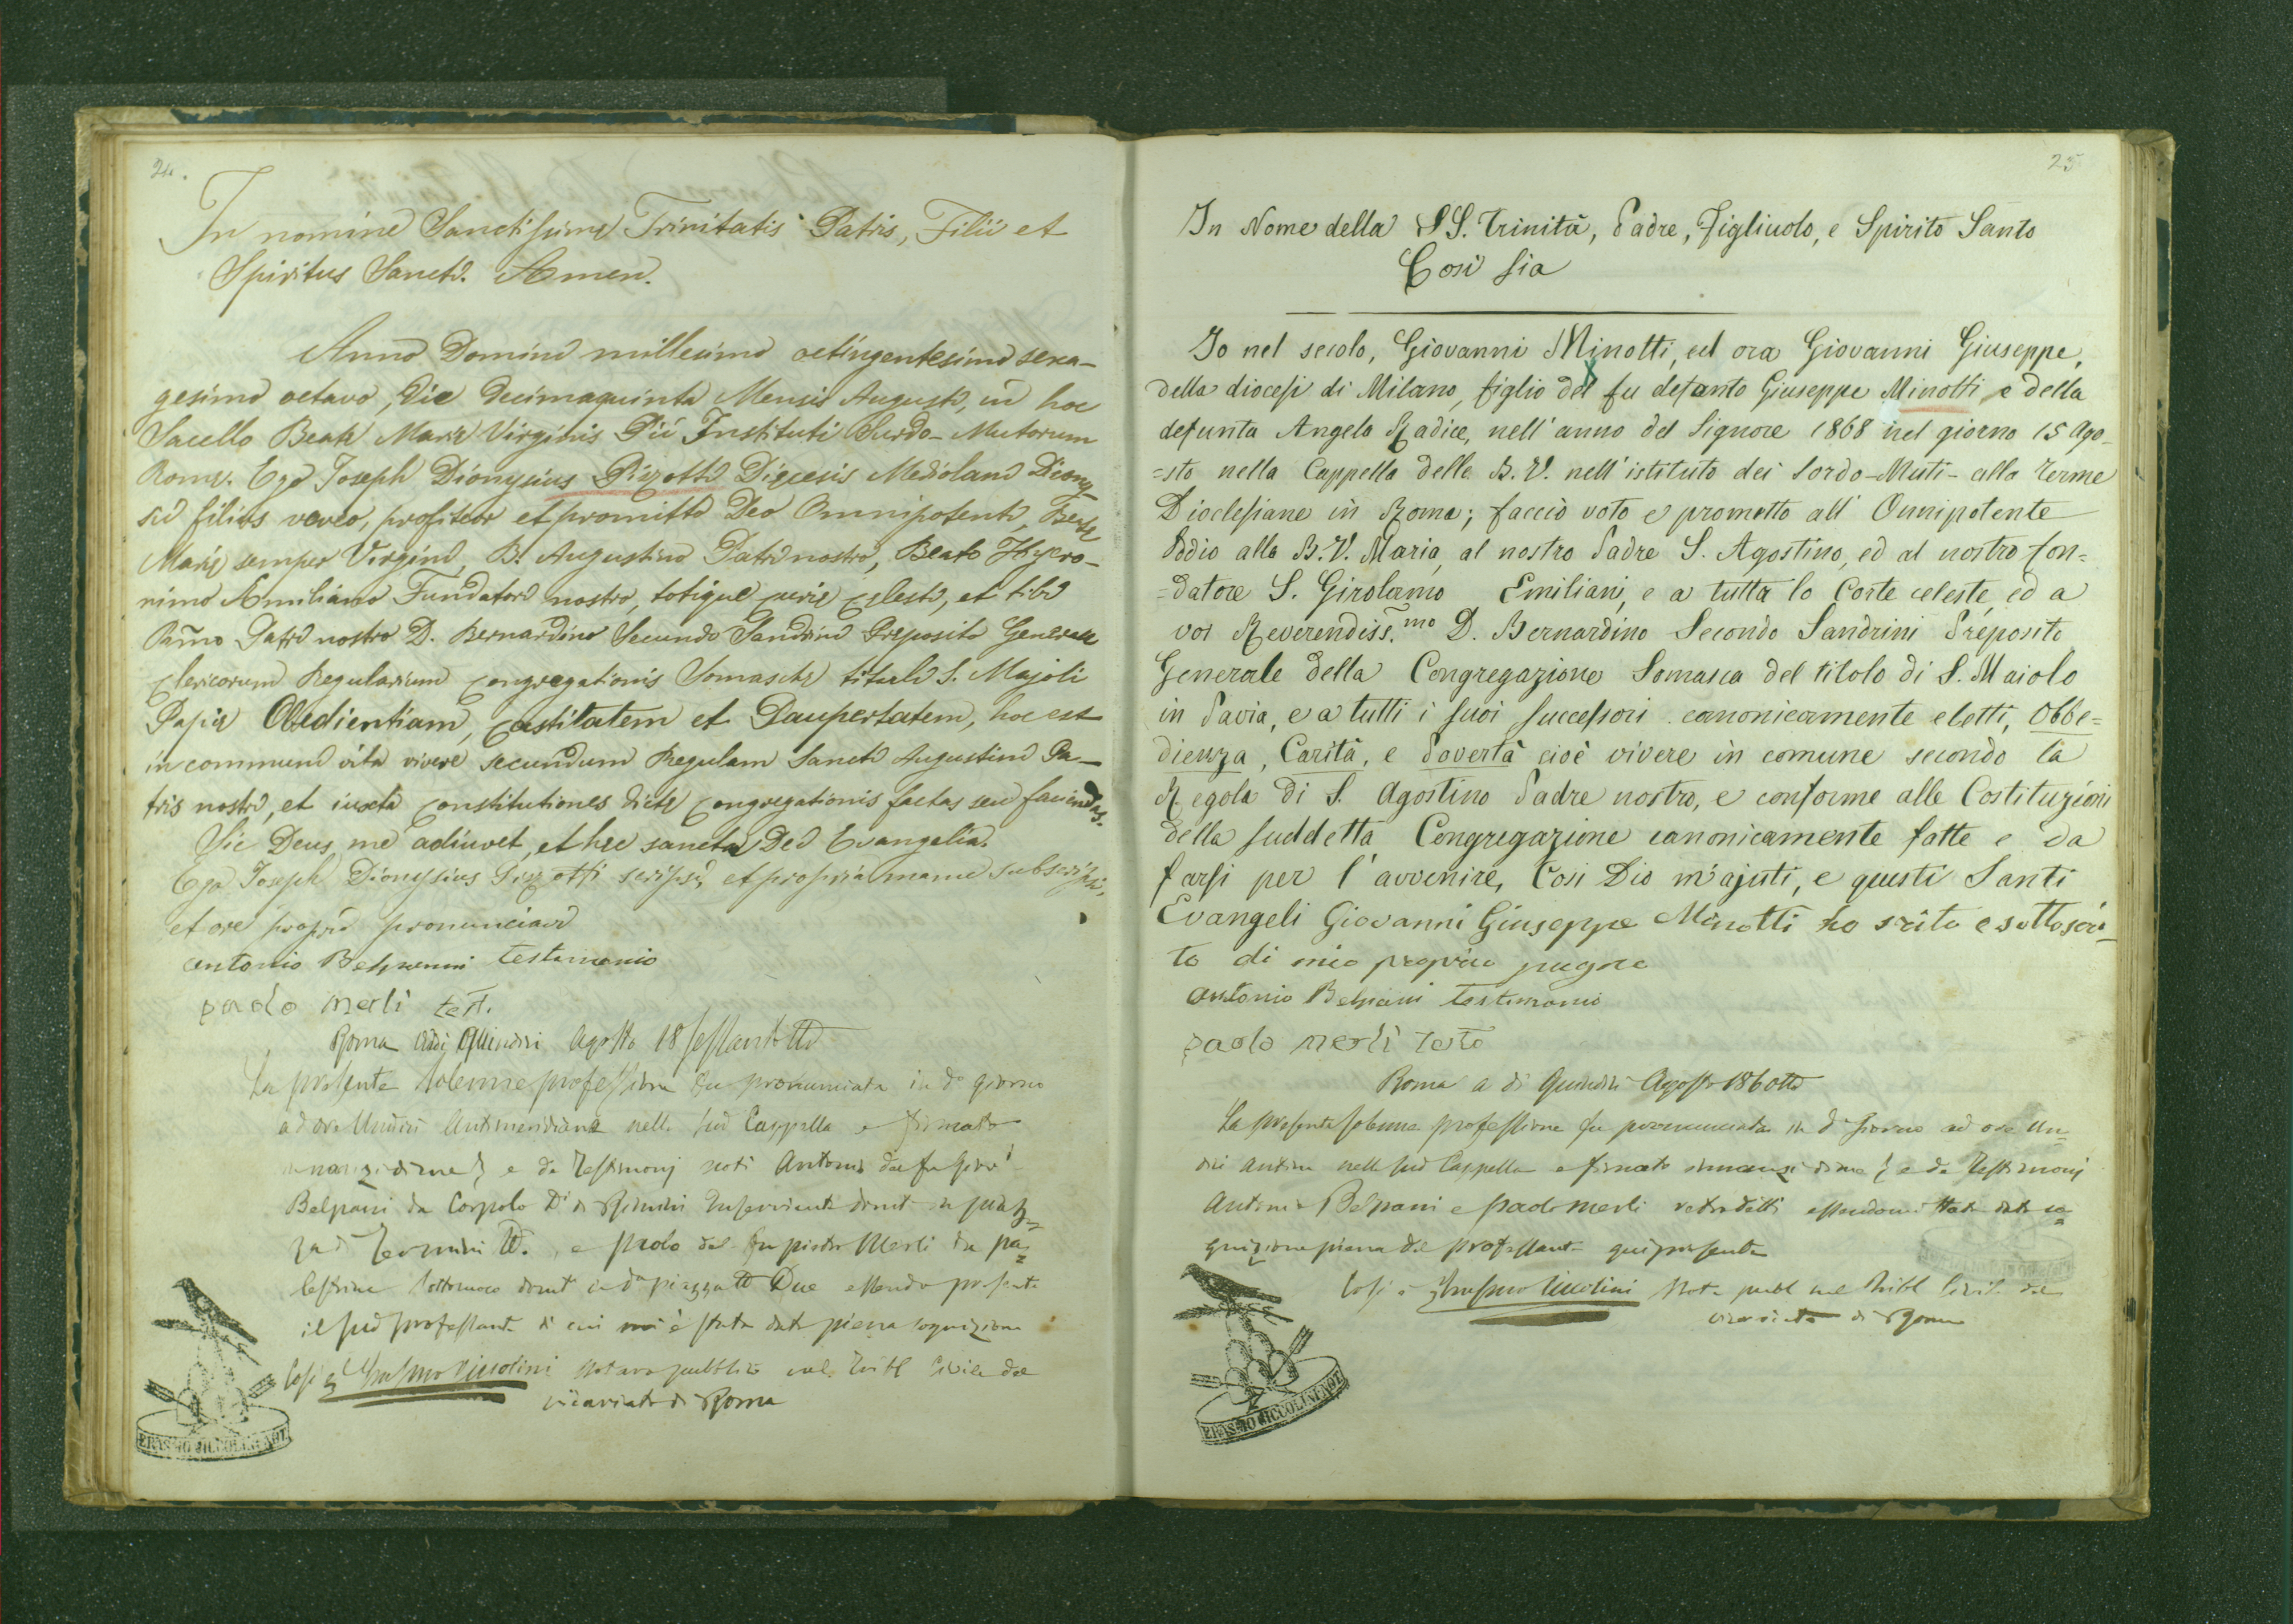 24.
In nomine Sanctissimę Trinitatis Patris, Filii et
Spiritus Sancti. Amen.
Anno Domini millesimo octingentesimo sexa-
gesimo octavo, die decimaquinta Mensis Augusti, in hoc
Sacello Beatę Marię Virginis Pii Instituti Surdo-Mutorum
Romę. Ego Joseph Dionysius Pizzotti Dięcesis Mediolani Diony-
sii filius voveo, profiteor et promitto Deo Omnipotenti, Beatę
Marię semper Virgini, B. Augustino Patri nostro, Beato Hyero-
nimo Ęmiliano Fundatori nostro, totique curię cęlesti, et tibi
Rmo Patri nostro D. Bernardino Secundo Sandrini Preposito Generali
Clericorum Regularium Congregationis Somaschę tituli S. Majoli
Papię Obedientiam, Castitatem et Paupertatem, hoc est
in communi vita vivere secundum Regulam Sancti Augustini Pa-
tris nostri, et iuxta Constitutiones dictę Congregationis factas seu faciendas.
Sic Deus me adiuvet, et hęc sancta Dei Evangelia.
Ego Joseph Dionysius Pizzotti scripsi, et propria manu subscripsi,
et ore proprio pronunciavi
antonio Belpani testimonio
paolo merli test.
Roma Adi Quindici Agosto 18sessantotto
La presente solenne professione fu pronunciata in do giorno
ad ore Undici Antimeridiane nella sud Cappella e firmata
innanzi di me e da Testimonj noti Antonio del fu
Belpani da Corpolo Di di Rimini Inserviente domt in piaz=
za di Termini e Paolo del fu pietro Merli da pa=
lestrina domt in da piazza Due essendo presente
il sud professante di cui mi è stata data piena cognizione
Così è Erasmo Ciccolini Notaro pubblico nel Tribl Civile del
vicariato di Roma
ERASMO CICCOLINI NOT.
25
In Nome della SS. Trinità, Padre, Figliuolo, e Spirito Santo
Così sia
Io nel secolo, Giovanni Minotti, ed ora Giovanni Giuseppe,
della diocesi di Milano, figlio del fu defunto Giuseppe Minotti, e della
defunta Angela Radice, nell'anno del Signore 1868 nel giorno 15 Ago-
=sto nella Cappella della B. V. nell'istituto dei Sordo-Muti- alla Terme
Dioclesiane in Roma; faccio voto e prometto all' Onnipotente
Iddio alla B. V. Maria, al nostro Padre S. Agostino, ed al nostro fon=
=datore S. Girolamo Emiliani, e a tutta la Corte celeste, ed a
voi Reverendiss.mo D. Bernardino Secondo Sandrini Preposito
Generale della Congregazione Somasca del titolo di S. Maiolo
in Pavia, e a tutti i suoi successori canonicamente eletti, Obbe=
dienza, Carità, e Povertà cioè vivere in comune secondo la
Regola di S. Agostino Padre nostro, e conforme alle Costituzioni
della suddetta Congregazione canonicamente fatte e da
farsi per l'avvenire, Così Dio m'ajuti, e questi Santi
Evangeli Giovanni Giuseppe Minotti ho scrito e sottoscri-
to di mio proprio pugno
antonio Belpani testimonio
paolo merli testo
Roma a di Quindici Agosto 186otto
La presente solenne professione fu pronunciata in do Giorno ad ore Un=
dici Antim nella sud Cappella e firmata innanzi di me e da Testimonj
Antonio Belpani e paolo merli retrodetti essendomi stata data co=
gnizione piena del professante qui presente
Così è Erasmo Ciccolini Nota pubbl nel Tribl Civile del
vicariato di Roma
ERASMO CICCOLINI NOT.